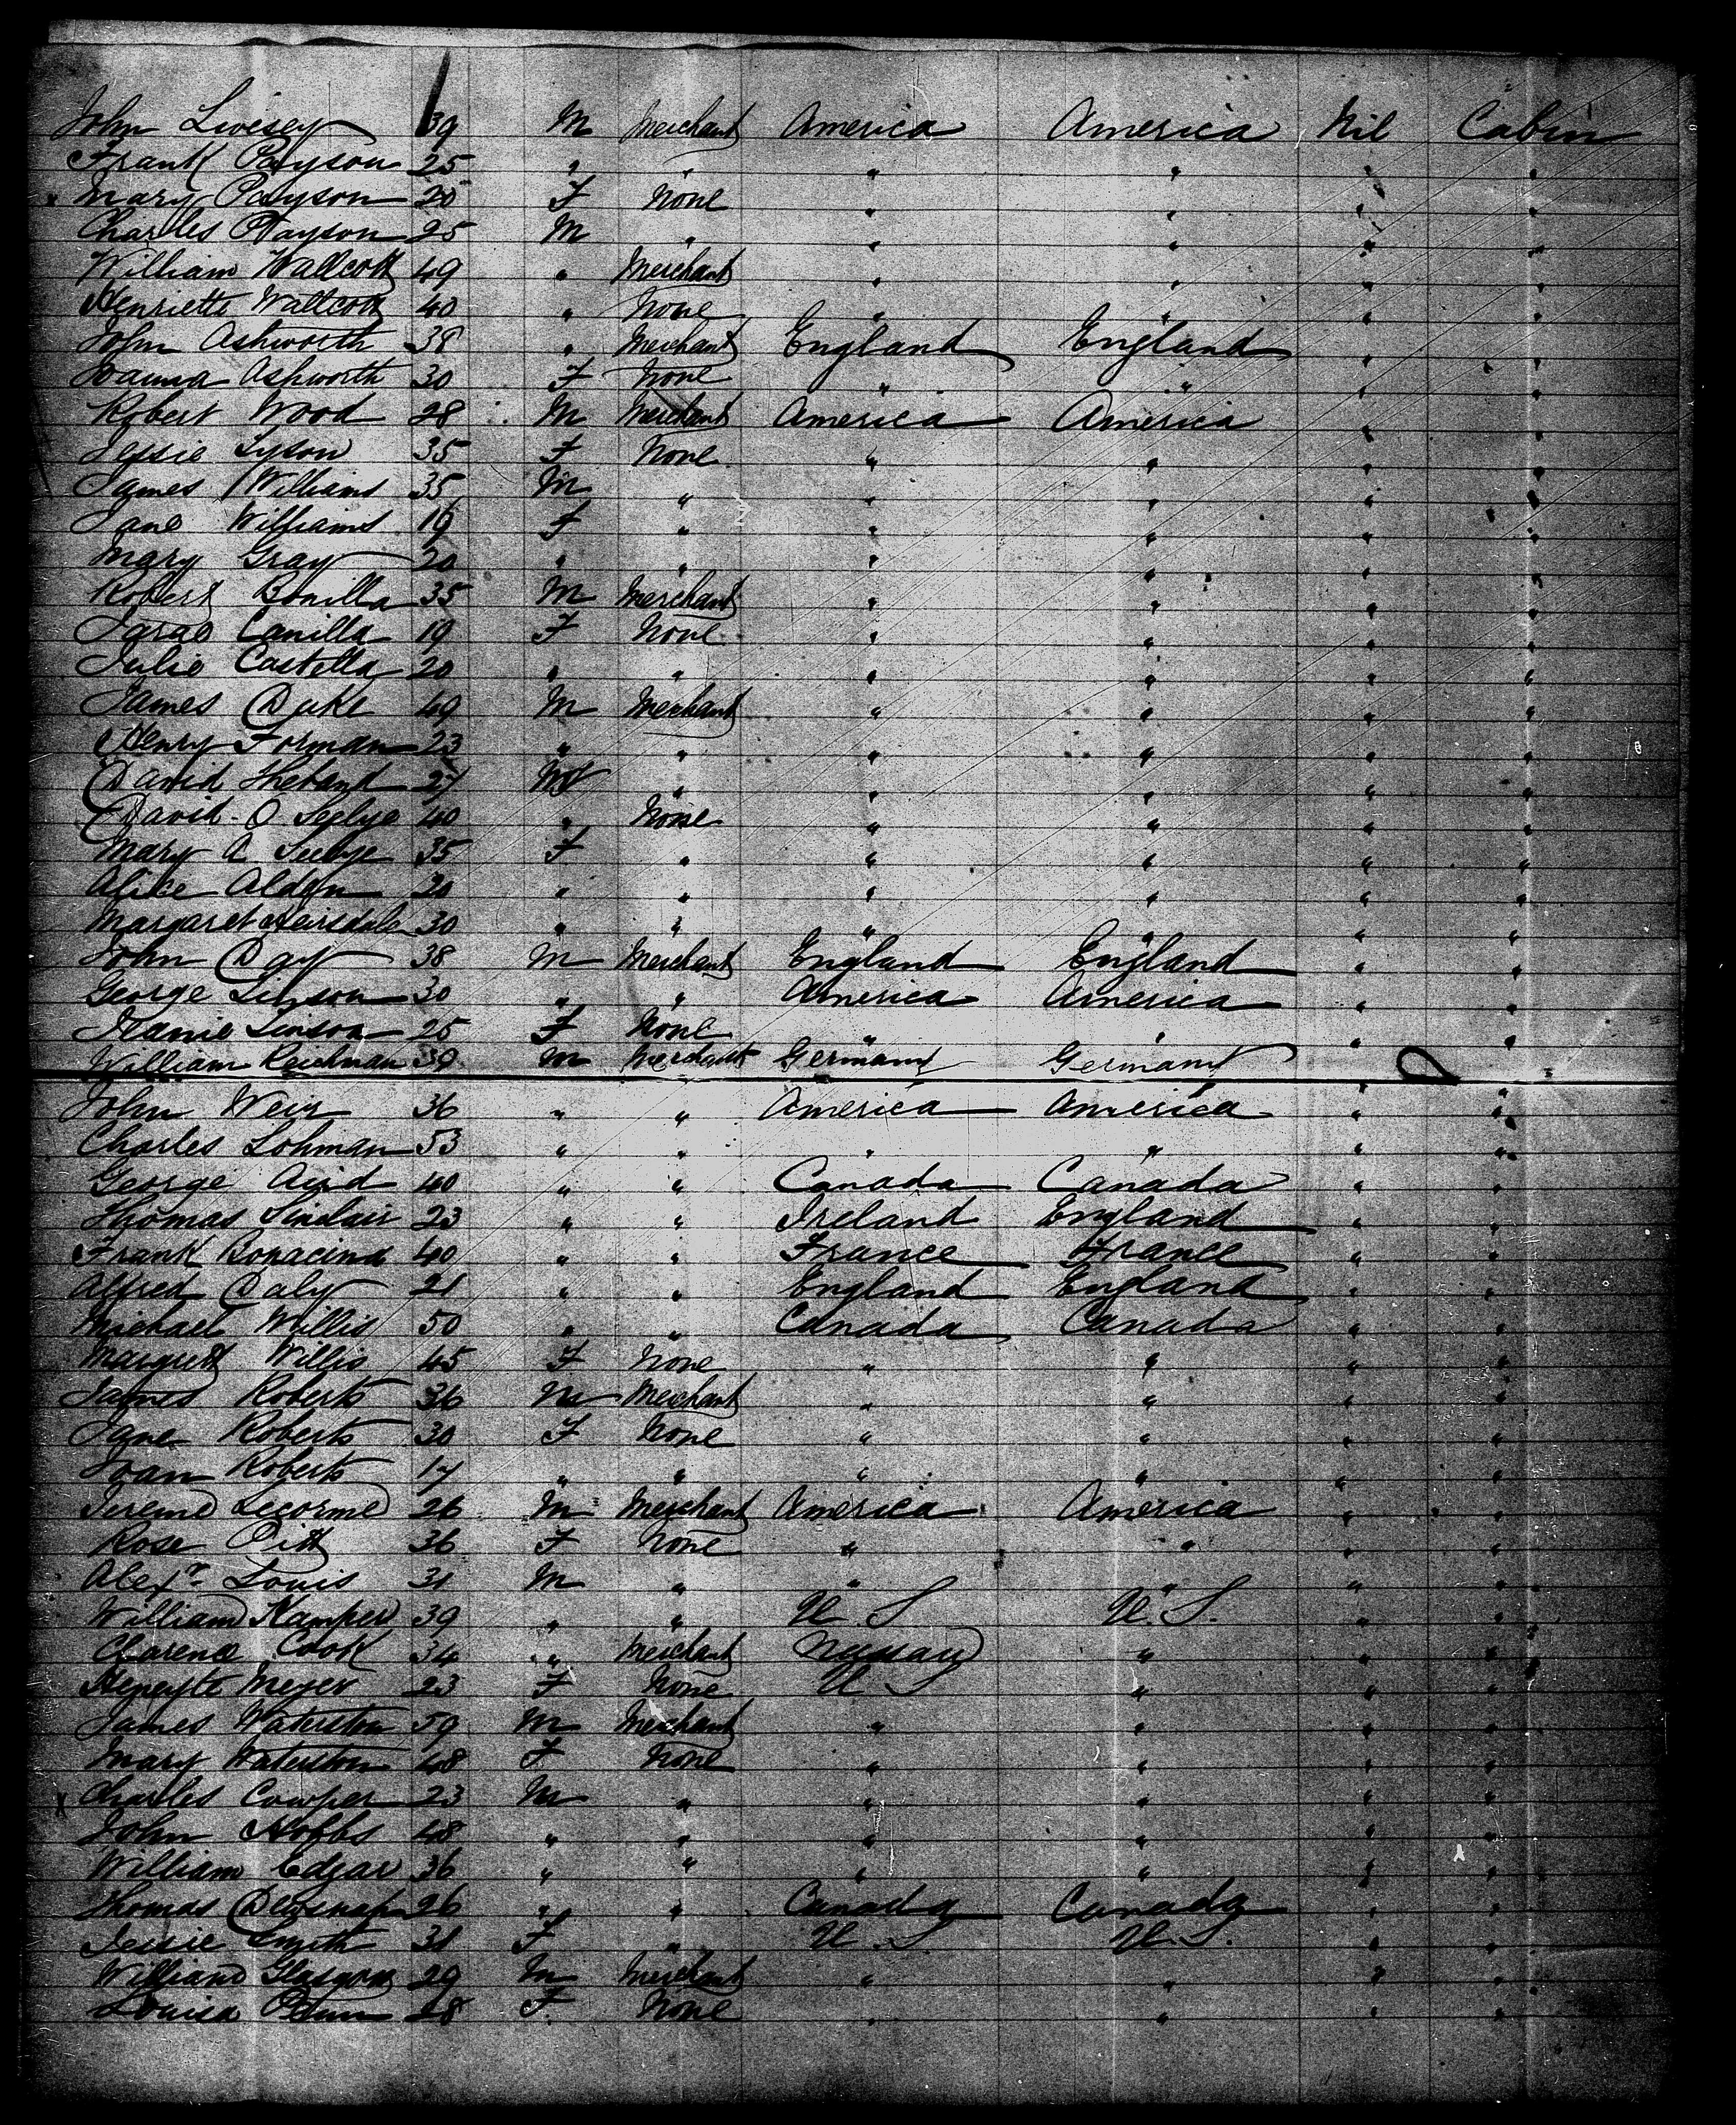 John Livesey 39 M Merchant America America Nil Cabin
Frank Payson 25 " " " " " "
Mary Payson 20 F None " " " "
Charles Payson 25 M " " " " "
William Wallcott 49 " Merchant " " " "
Henriette Wallcott 40 " None " " " "
John Ashworth 38 " Merchant England England " "
Ashworth 30 F None " " " "
Robert Wood 28 M Merchant America America " "
Jessie Lyson 35 F None " " " "
James Williams 35 M " " " " "
Jane Williams 19 F " " " " "
Mary Gray 20 " " " " " "
Robert Bonilla 35 M Merchant " " " "
Canilla 19 F None " " " "
Julie Castella 20 " " " " " "
James Duke 49 M Merchant " " " "
Henry Forman 23 " " " " " "
David 27 M " " " " "
David O Seelye 40 " None " " " "
Mary A Seelye 35 F " " " " "
Alice Alden 30 " " " " " "
Margaret 30 " " " " " "
John Day 38 M Merchant England England " "
George 30 " " America America " "
Jeanie Linson 25 F None " " " "
William Reichman 39 M Merchant Germany Germany
John Weir 36 " " America America " "
Charles Lohman 53 " " " " " "
George Aird 40 " " Canada Canada " "
Thomas Sinclair 23 " " Ireland England " "
Frank Bonacina 40 " " France France " "
Alfred Daly 21 " " England England " "
Michael Willis 50 " " Canada Canada " "
Margrett Willis 45 F None " " " "
James Roberts 36 M Merchant " " " "
Jane Roberts 30 F None " " " "
Joan Roberts 17 " " " " " "
Jereme Lecorme 26 M Merchant America America " "
Rose Pitt 36 F None " " " "
Alexr Louis 31 M " " " " "
William Kamper 39 " " U.S U.S. " "
Clarence Cook 34 " Merchant " " "
Meyer 23 F None U S " " "
James Waterston 59 M Merchant " " " "
Mary Waterston 48 F None " " " "
x Charles Cowper 23 M " " " " "
John Hobbs 48 " " " " " "
William Edgar 36 " " " " " "
Thomas 26 " " Canada Canada " "
Jessie Smyth 31 F " U.S. U.S. " "
William Glasgow 29 M Merchant " " " "
Louisa 28 F None " " " "